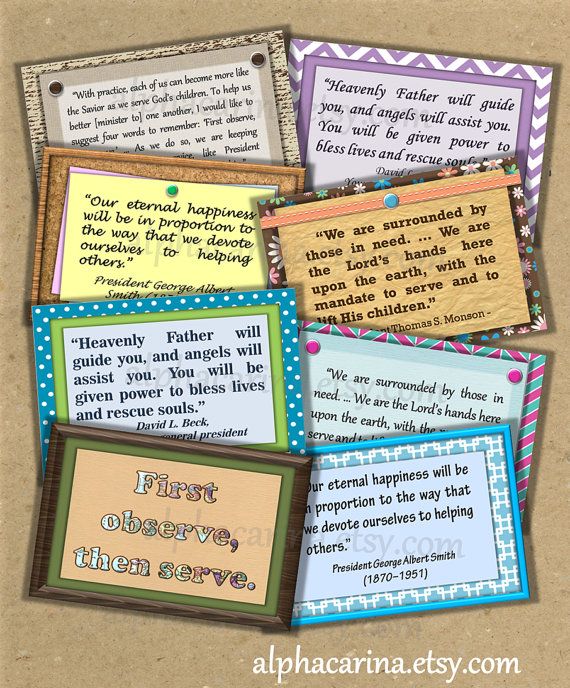 “With practice, each of us can become more like
the Savior as we serve God’s children. To help us
better [minister to] one another, I would like to
suggest four words to remember: ‘First observe,
As we do so, we are keeping
like President
“Heavenly Father will guide
you, and angels will assist you.
You will be given power to
bless lives and rescue souls.”
David L.
“Our eternal happiness
will be in proportion to
the way that we devote
ourselves to helping
others.”
President George Albert
Smith
“We are surrounded by
those in need. ... We are
the Lord’s hands here
upon the earth, with the
mandate to serve and to
lift His children.”
Thomas S. Monson -
“Heavenly Father will
guide you, and angels will
assist you. You will be
given power to bless lives
and rescue souls.”
David L. Beck,
general president
“We are surrounded by those in
need. ... We are the Lord’s hands here
upon the earth, with the
serve and to
First
observe,
then serve.
Our eternal happiness will be
in proportion to the way that
we devote ourselves to helping
others.”
President George Albert Smith
(1870–1951)
alphacarina.etsy.com
alphacarina.etsy.com